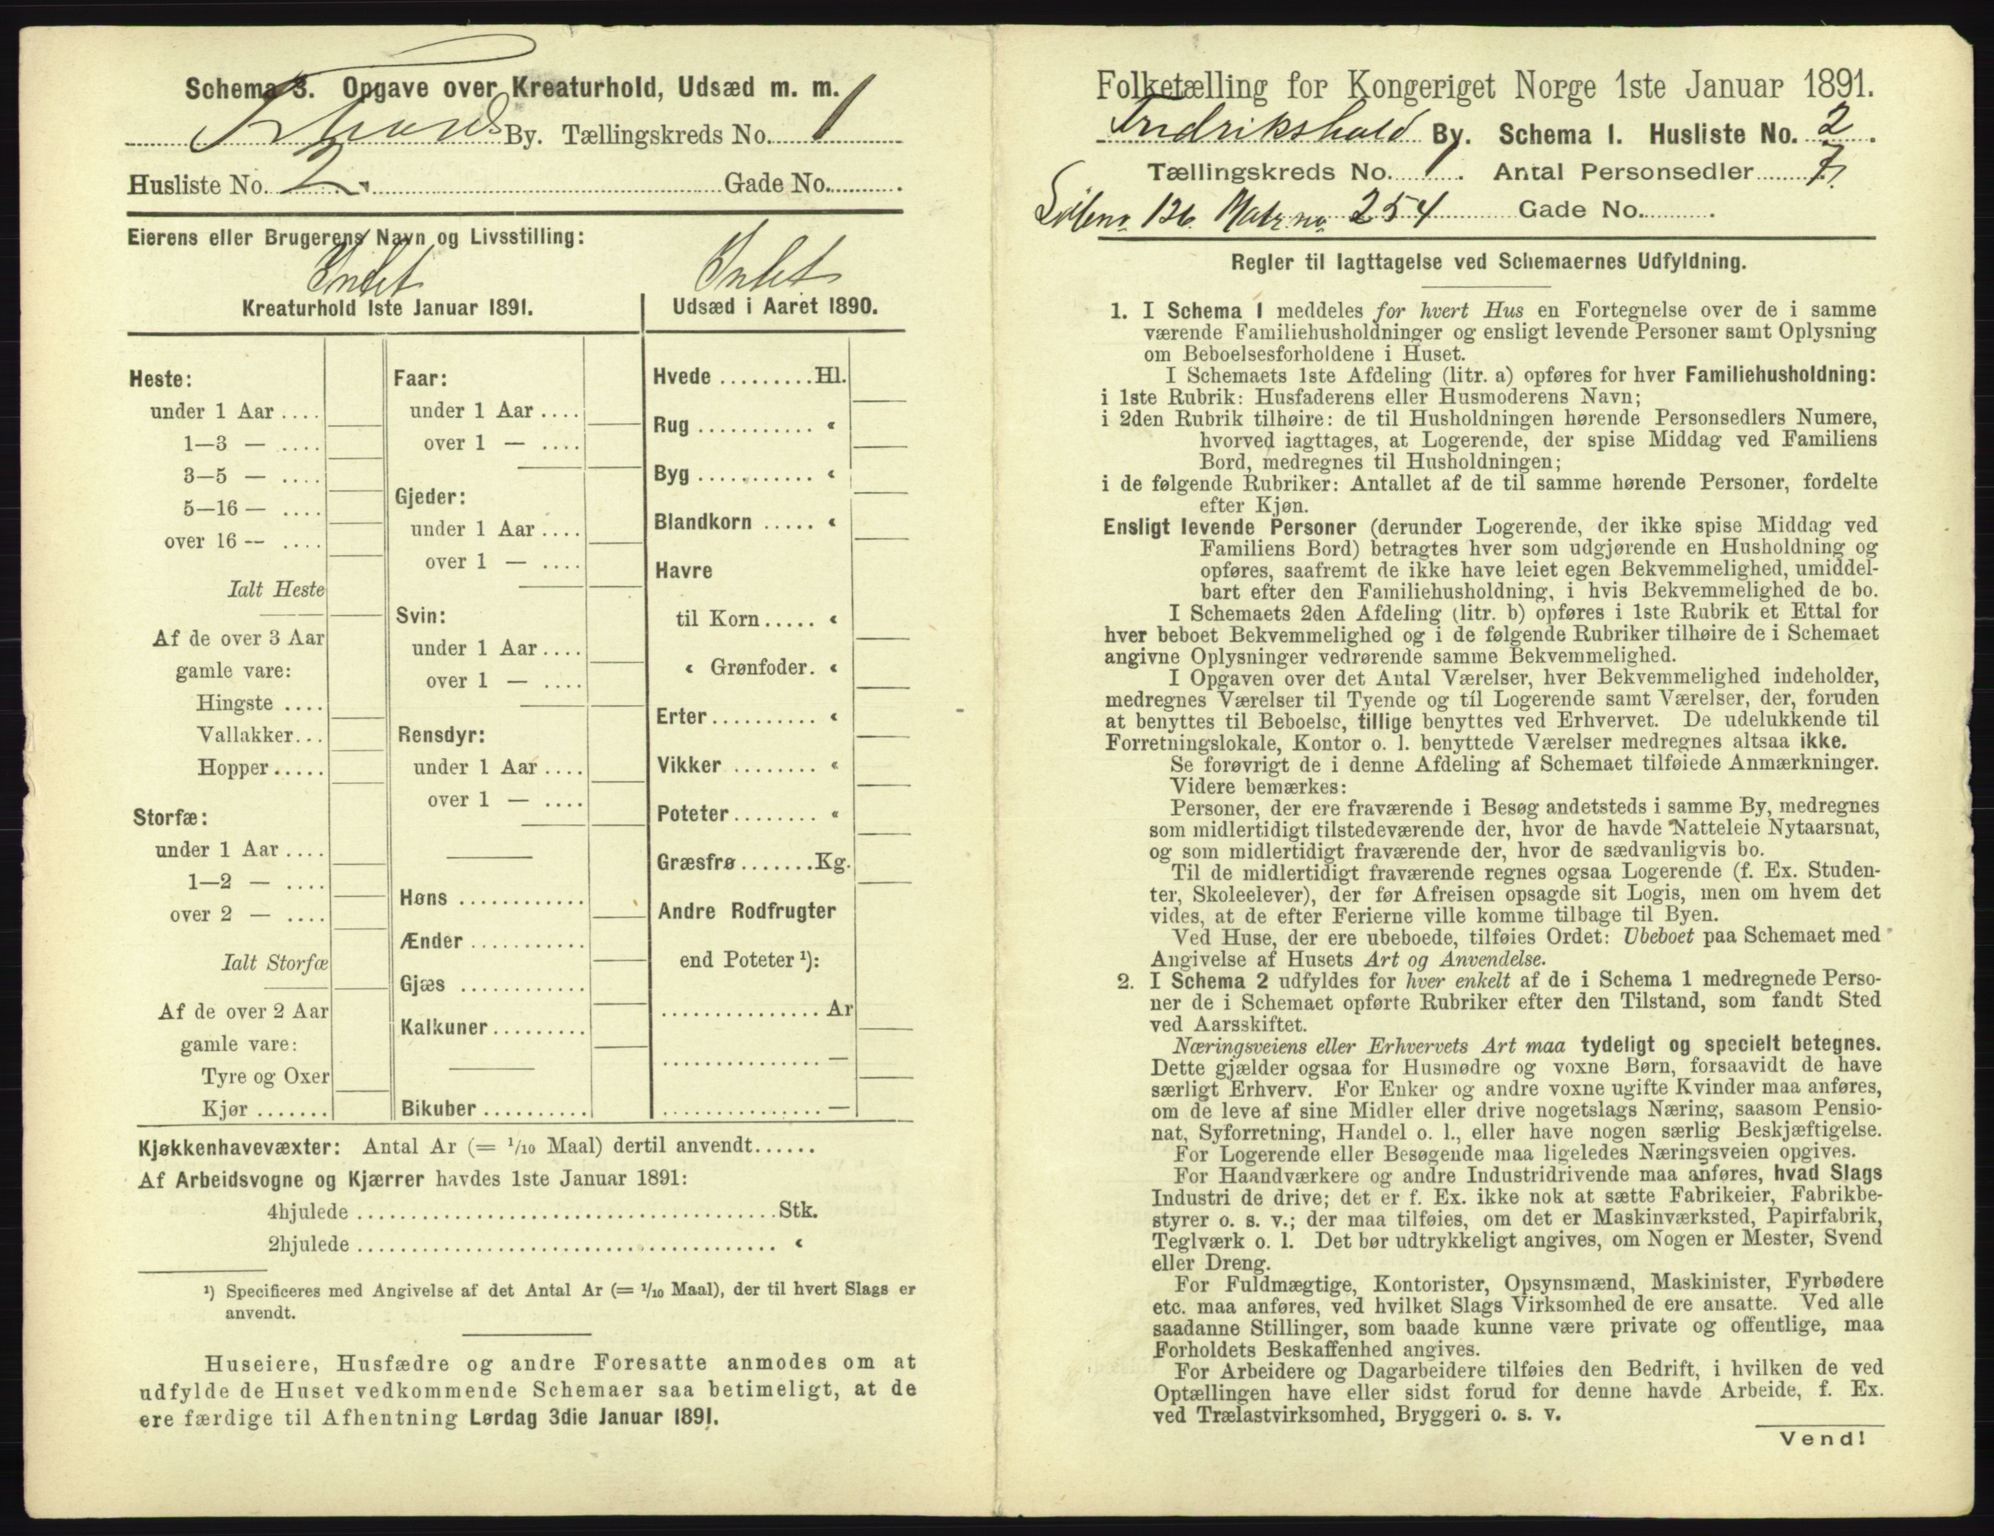 Schema 3. Opgave over Kreaturhold, Udsæd m. m.
By. Tællingskreds No. 1
Husliste No. 2. Gade No.
Eierens eller Brugerens Navn og Livsstilling:
Intet Intet
Kreaturhold 1ste Januar 1891.
Heste:
under 1 Aar ....
1—3 — ....
3—5 — ....
5—16 — ....
over 16 -- ....
Ialt Heste
Af de over 3 Aar
gamle vare:
Hingste ....
Vallakker...
Hopper.....
Storfæ:
under 1 Aar ....
1—2 — ....
over 2 — ....
Ialt Storfæ
Af de over 2 Aar
gamle vare:
Tyre og Oxer
Kjør .......
Faar:
under 1 Aar ....
over 1 — ....
Gjeder:
under 1 Aar ....
over 1 — ....
Svin:
under 1 Aar ....
over 1 — ....
Rensdyr:
under 1 Aar ....
over 1 — ....
Høns ............
Ænder ...........
Gjæs ............
Kalkuner.........
Bikuber ..........
Udsæd i Aaret 1890.
Hvede .........Hl.
Rug ........... «
Byg ........... «
Blandkorn ..... «
Havre
til Korn..... «
« Grønfoder. «
Erter.......... «
Vikker ........ «
Poteter........ «
Græsfrø .......Kg.
Andre Rodfrugter
end Poteter ¹):
............... Ar
............... —
............... —
Kjøkkenhavevæxter: Antal Ar (= 1/10 Maal) dertil anvendt......
Af Arbeidsvogne og Kjærrer havdes 1ste Januar 1891:
4hjulede ....................................... Stk.
2hjulede ....................................... «
¹) Specificeres med Angivelse af det Antal Ar (= 1/10 Maal), der til hvert Slags er
anvendt.
Huseiere, Husfædre og andre Foresatte anmodes om at
udfylde de Huset vedkommende Schemaer saa betimeligt, at de
ere færdige til Afhentning Lørdag 3die Januar 1891.
Folketælling for Kongeriget Norge 1ste Januar 1891.
Fredrikshald By. Schema 1. Husliste No. 2.
Tællingskreds No. 1. Antal Personsedler 7.
126 Matr no 254 Gade No. .
Regler til Iagttagelse ved Schemaernes Udfyldning.
1. I Schema 1 meddeles for hvert Hus en Fortegnelse over de i samme
værende Familiehusholdninger og ensligt levende Personer samt Oplysning
om Beboelsesforholdene i Huset.
I Schemaets 1ste Afdeling (litr. a) opføres for hver Familiehusholdning:
i 1ste Rubrik: Husfaderens eller Husmoderens Navn;
i 2den Rubrik tilhøire: de til Husholdningen hørende Personsedlers Numere,
hvorved iagttages, at Logerende, der spise Middag ved Familiens
Bord, medregnes til Husholdningen;
i de følgende Rubriker: Antallet af de til samme hørende Personer, fordelte
efter Kjøn.
Ensligt levende Personer (derunder Logerende, der ikke spise Middag ved
Familiens Bord) betragtes hver som udgjørende en Husholdning og
opføres, saafremt de ikke have leiet egen Bekvemmelighed, umiddel-
bart efter den Familiehusholdning, i hvis Bekvemmelighed de bo.
I Schemaets 2den Afdeling (litr. b) opføres i 1ste Rubrik et Ettal for
hver beboet Bekvemmelighed og i de følgende Rubriker tilhøire de i Schemaet
angivne Oplysninger vedrørende samme Bekvemmelighed.
I Opgaven over det Antal Værelser, hver Bekvemmelighed indeholder,
medregnes Værelser til Tyende og til Logerende samt Værelser, der, foruden
at benyttes til Beboelse, tillige benyttes ved Erhvervet. De udelukkende til
Forretningslokale, Kontor o. l. benyttede Værelser medregnes altsaa ikke.
Se forøvrigt de i denne Afdeling af Schemaet tilføiede Anmærkninger.
Videre bemærkes:
Personer, der ere fraværende i Besøg andetsteds i samme By, medregnes
som midlertidigt tilstedeværende der, hvor de havde Natteleie Nytaarsnat,
og som midlertidigt fraværende der, hvor de sædvanligvis bo.
Til de midlertidigt fraværende regnes ogsaa Logerende (f. Ex. Studen-
ter, Skoleelever), der før Afreisen opsagde sit Logis, men om hvem det
vides, at de efter Ferierne ville komme tilbage til Byen.
Ved Huse, der ere ubeboede, tilføies Ordet: Ubeboet paa Schemaet med
Angivelse af Husets Art og Anvendelse.
2. I Schema 2 udfyldes for hver enkelt af de i Schema 1 medregnede Perso-
ner de i Schemaet opførte Rubriker efter den Tilstand, som fandt Sted
ved Aarsskiftet.
Næringsveiens eller Erhvervets Art maa tydeligt og specielt betegnes.
Dette gjælder ogsaa for Husmødre og voxne Børn, forsaavidt de have
særligt Erhverv. For Enker og andre voxne ugifte Kvinder maa anføres,
om de leve af sine Midler eller drive nogetslags Næring, saasom Pensio-
nat, Syforretning, Handel o. l., eller have nogen særlig Beskjæftigelse.
For Logerende eller Besøgende maa ligeledes Næringsveien opgives.
For Haandværkere og andre Industridrivende maa anføres, hvad Slags
Industri de drive; det er f. Ex. ikke nok at sætte Fabrikeier, Fabrikbe-
styrer o. s. v.; der maa tilføies, om det er Maskinværksted, Papirfabrik,
Teglværk o. l. Det bør udtrykkeligt angives, om Nogen er Mester, Svend
eller Dreng.
For Fuldmægtige, Kontorister, Opsynsmænd, Maskinister, Fyrbødere
etc. maa anføres, ved hvilket Slags Virksomhed de ere ansatte. Ved alle
saadanne Stillinger, som baade kunne være private og offentlige, maa
Forholdets Beskaffenhed angives.
For Arbeidere og Dagarbeidere tilføies den Bedrift, i hvilken de ved
Optællingen have eller sidst forud for denne havde Arbeide, f. Ex.
ved Trælastvirksomhed, Bryggeri o. s. v.
Vend!